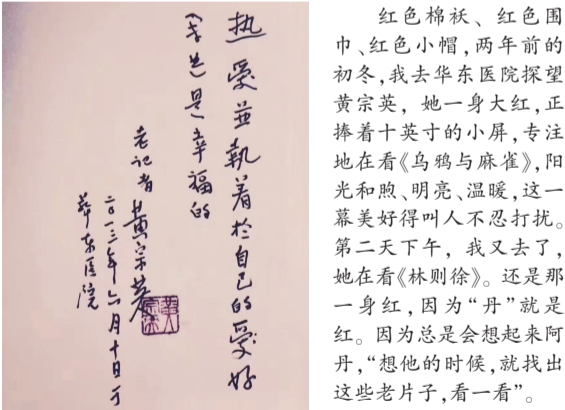 热愛並執着於自己的愛好
是幸福的
老记者 黄宗英
二〇一三年六月十日于
華东医院
红色棉袄、红色围
巾、红色小帽，两年前的
初冬，我去华东医院探望
黄宗英，她一身大红，正
捧着十英寸的小屏，专注
地在看《乌鸦与麻雀》，阳
光和煦、明亮、温暖，这一
幕美好得叫人不忍打扰。
第二天下午，我又去了，
她在看《林则徐》。还是那
一身红，因为“丹”就是
红。因为总是会想起来阿
丹，“想他的时候，就找出
这些老片子，看一看”。